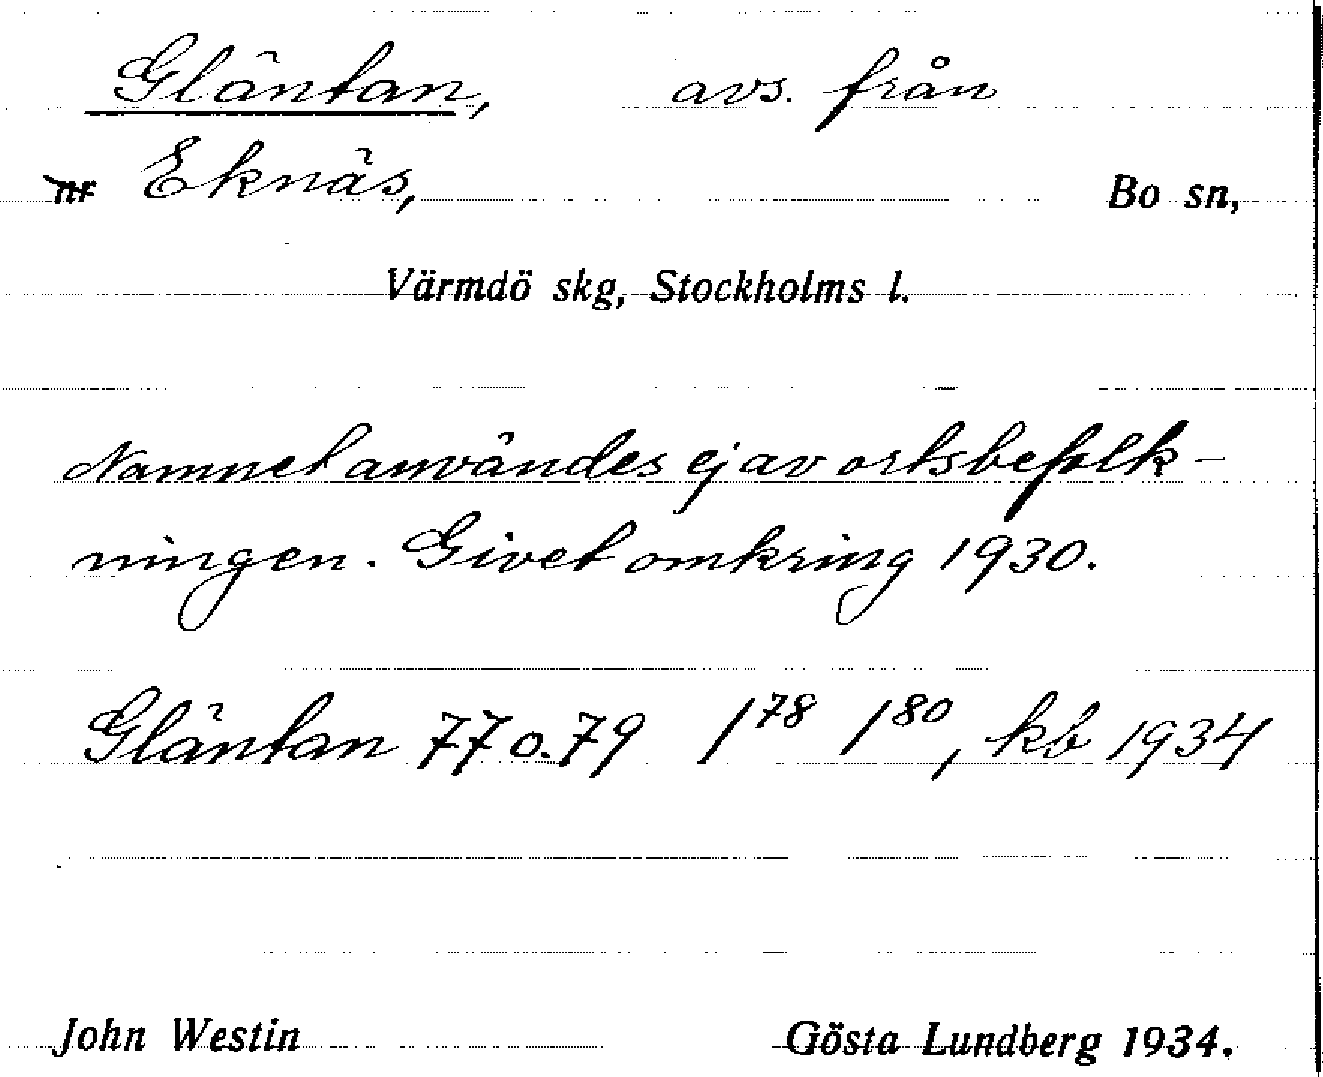 Gläntan, avs. från
Eknäs, Bo sn,
Värmdö skg, Stockholms l.
Namnet användes ej av ortsbefolk-
ningen. Givet omkring 1930.
Gläntan 77 o. 79 1⁷⁸ 1⁸⁰, kb 1934
John Westin Gösta Lundberg 1934.